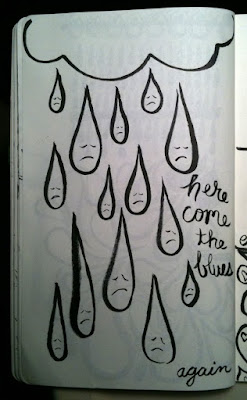 here
come
the
blues
again